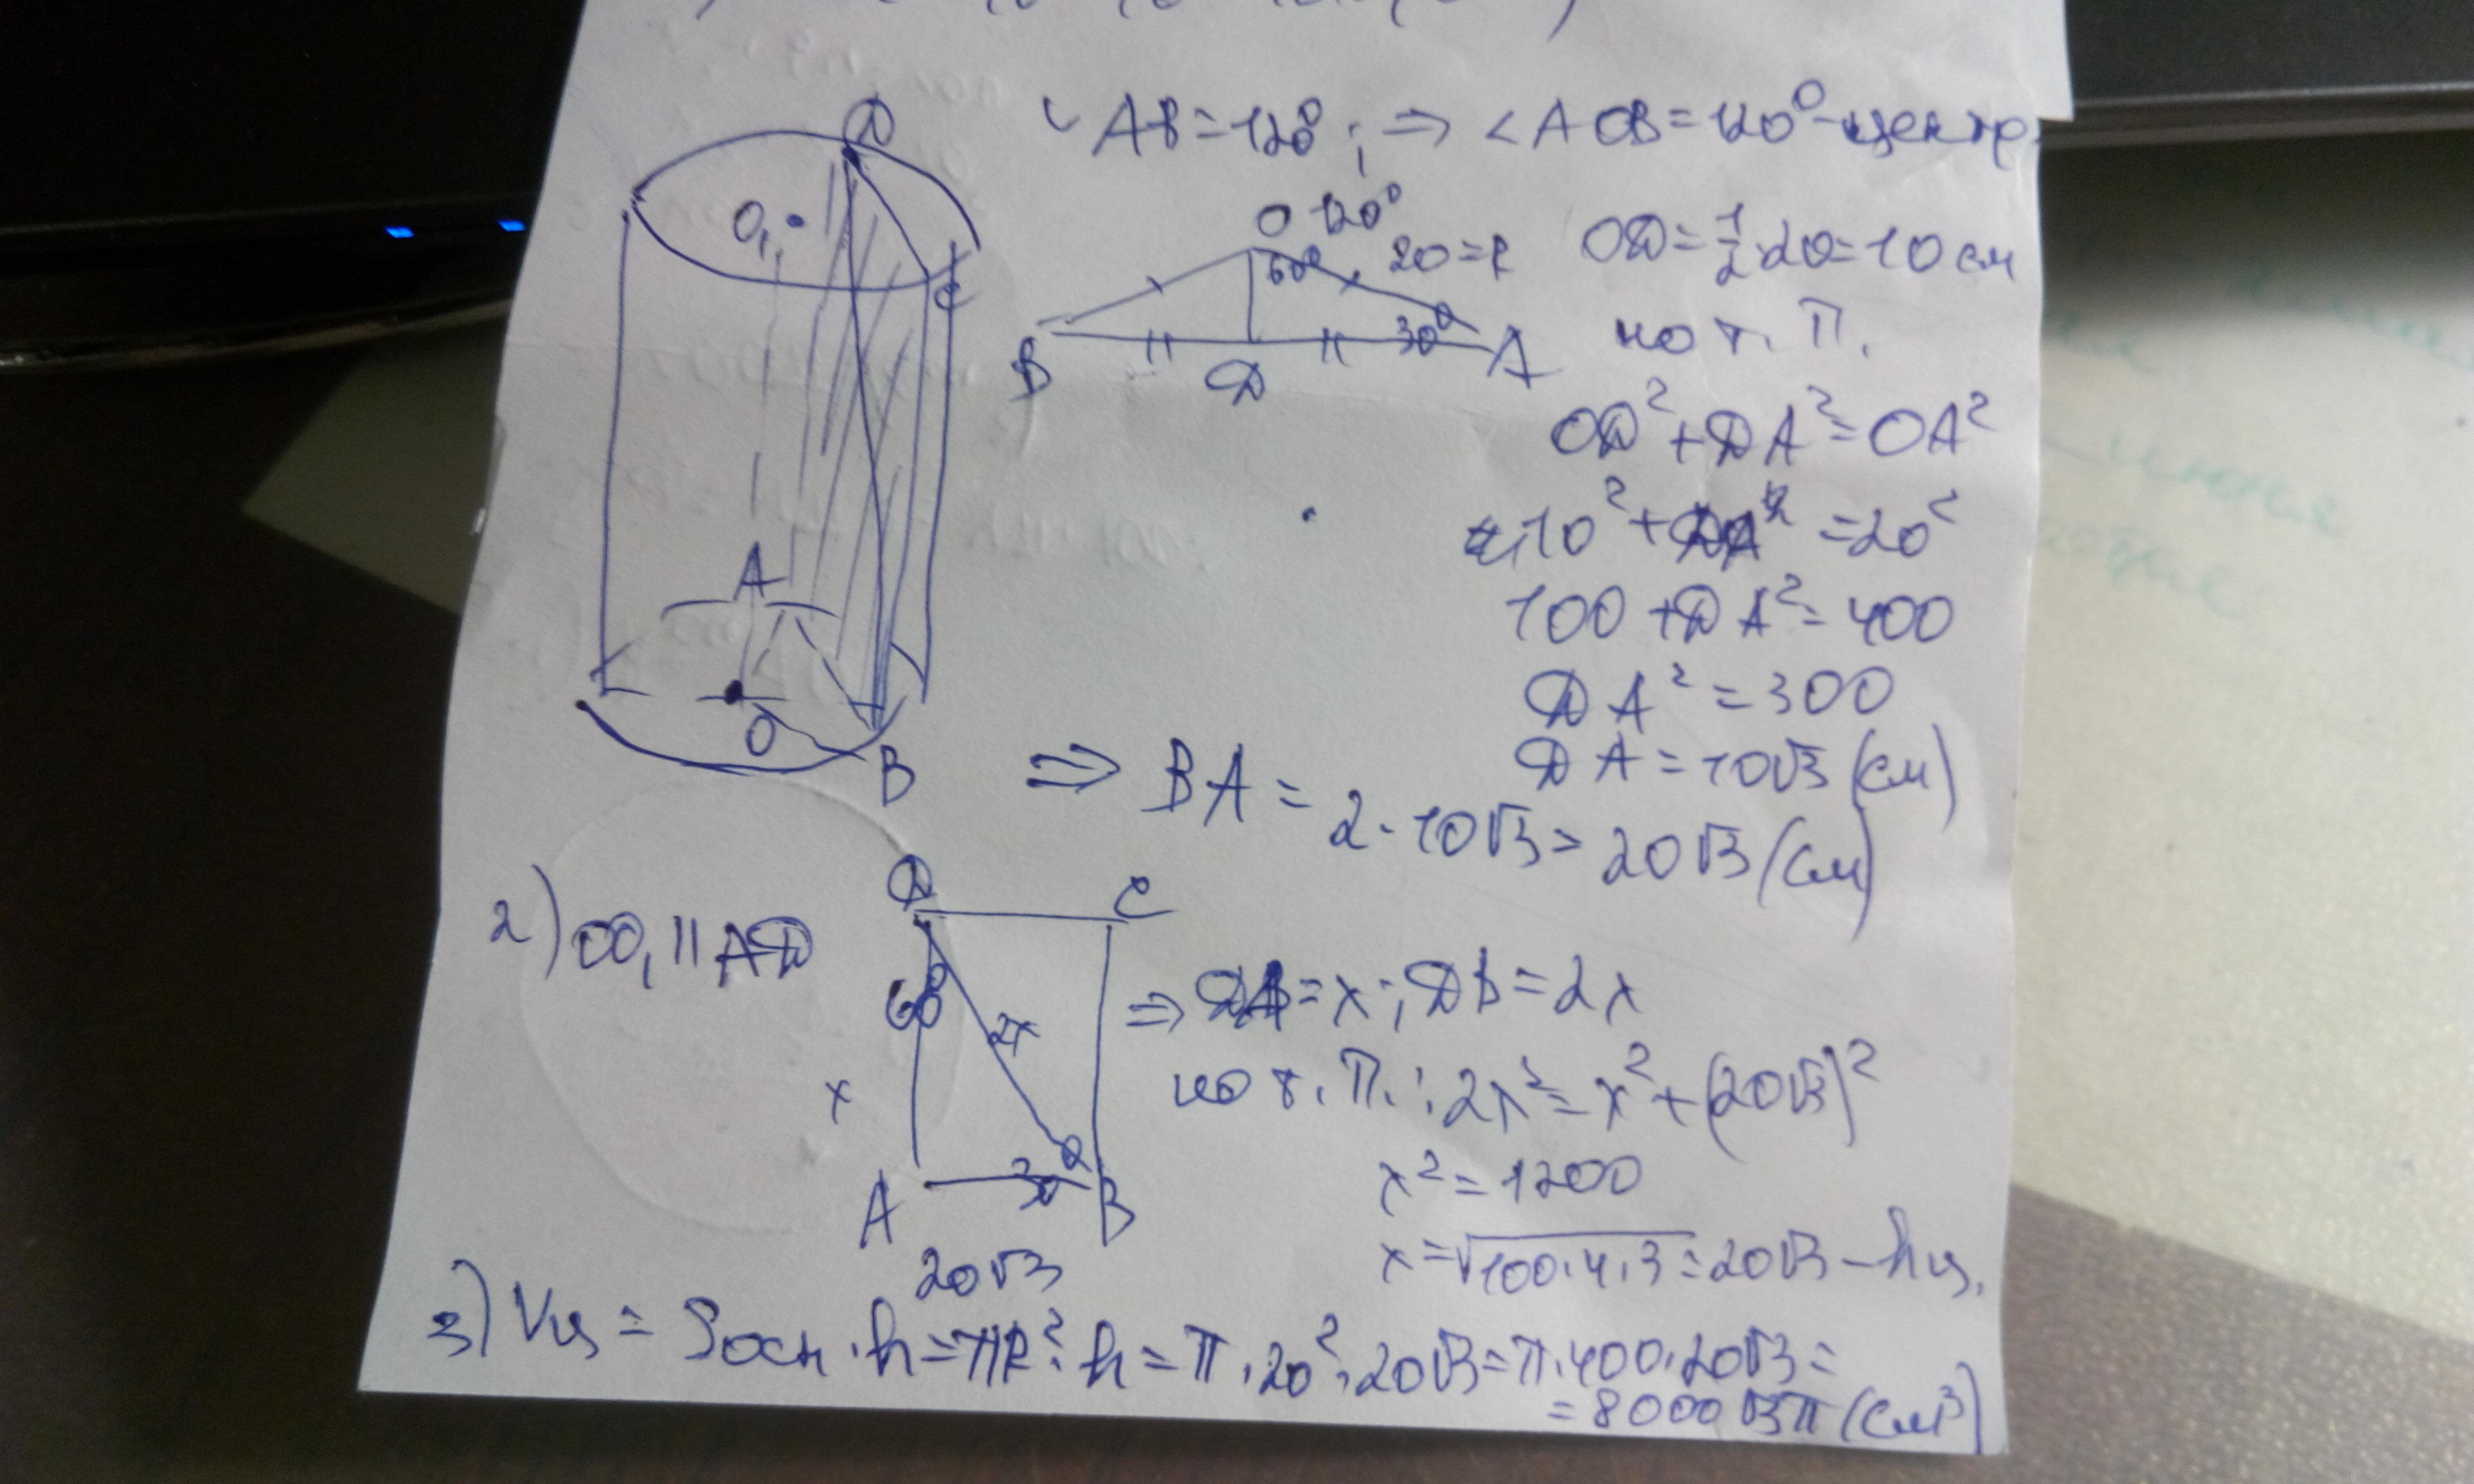 ◡ AB = 120° ; ⇒ ∠AOB = 120° - центр.
D
O₁
C
A
O
B
O 120°
60°
20 = R
30°
B
D
A
OD = 1/2 · 20 = 10 см
по т. П.
OD² + DA² = OA²
10² + DA² = 20²
100 + DA² = 400
DA² = 300
DA = 10√3 (см)
⇒ BA = 2 · 10√3 = 20√3 (см)
2) OO₁ || AD
D
C
60°
2x
x
30°
A
B
20√3
⇒ DA = x ; DB = 2x
по т. П. : 2x² = x² + (20√3)²
x² = 1200
x = √100·4·3 = 20√3 - hц.
3) Vц = Sосн · h = πR² · h = π · 20² · 20√3 = π · 400 · 20√3 =
= 8000√3π (см³)